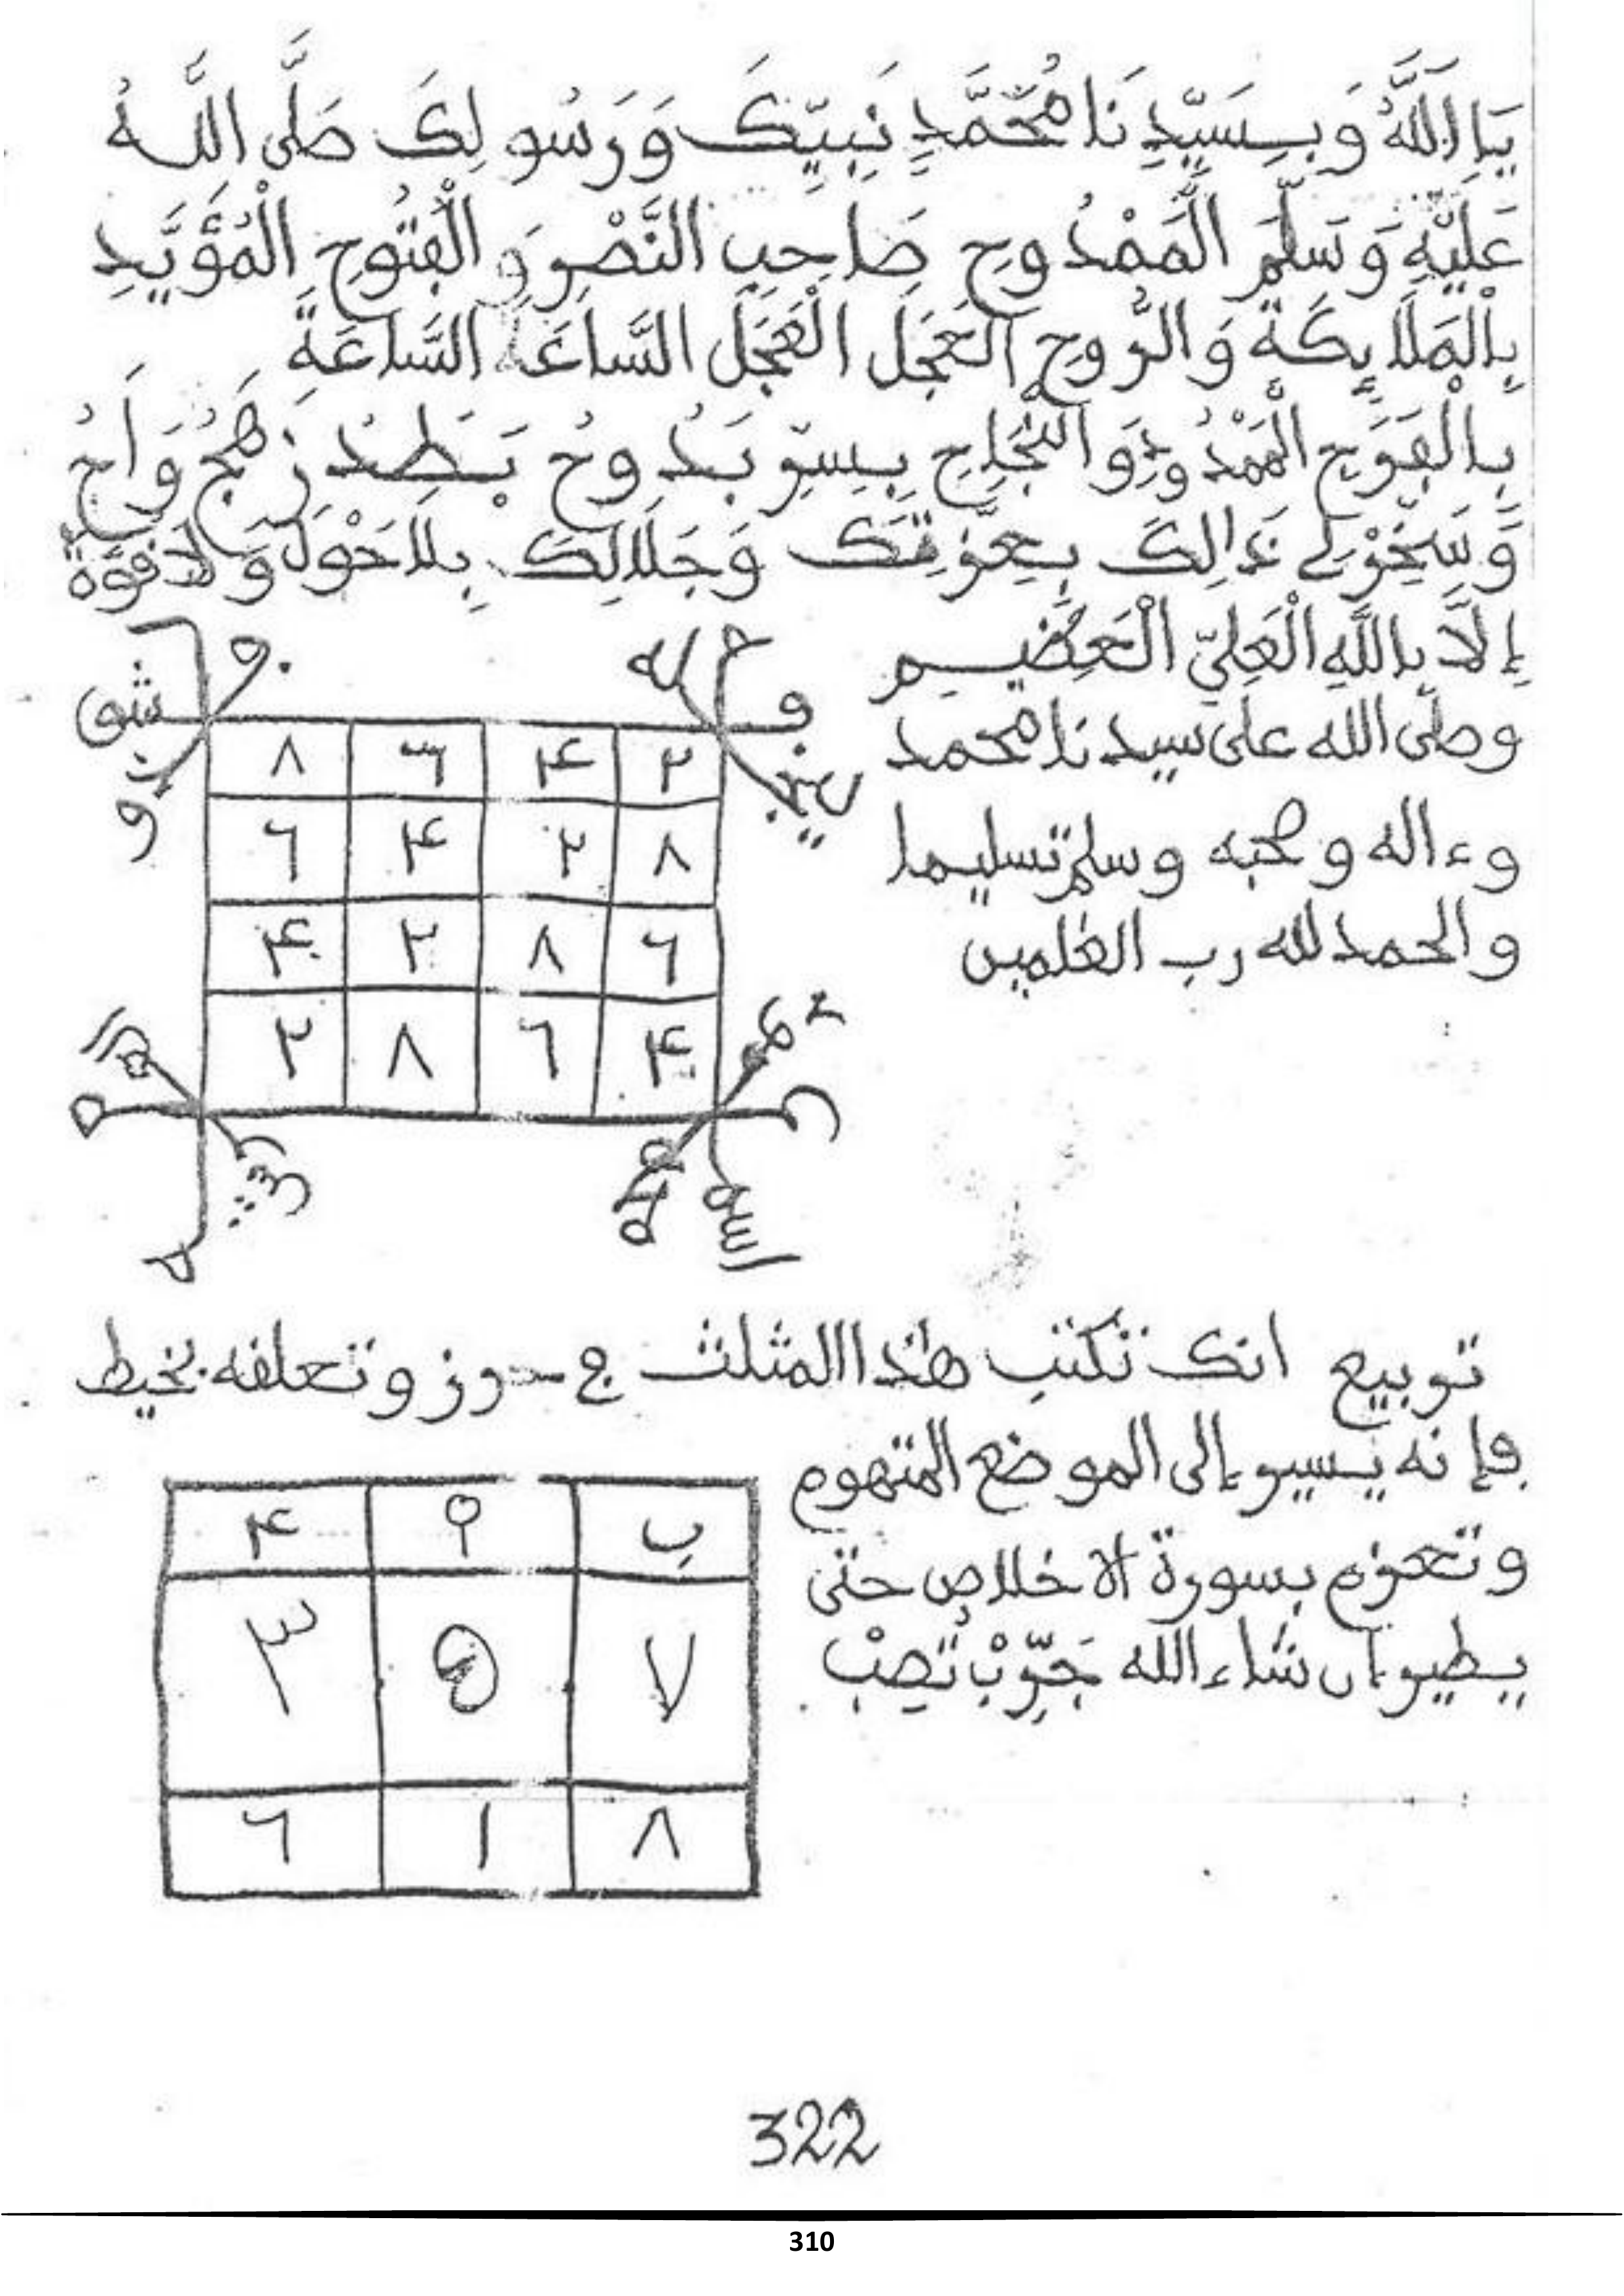 يَا اَللَّهُ وَبِسَيِّدِنَا مُحَمَّدٍ نَبِيِّكَ وَرَسُولِكَ صَلَّى اللَّهُ
عَلَيْهِ وَسَلَّمَ الْمَمْدُوحِ صَاحِبِ النَّصْرِ وَالْفُتُوحِ الْمُؤَيَّدِ
بِالْمَلَايِكَةِ وَالرُّوحِ الْعَجَلَ الْعَجَلَ السَّاعَةَ السَّاعَةَ
بِالْفَرَجِ الْمَمْدُودِ وَالنَّجَاحِ بِسِرِّ بَدُوحُ بَطَدْ زَهَجْ وَاحُ
وَسَخِّرْ لِي ذَالِكَ بِعِزَّتِكَ وَجَلَالِكَ بِلَا حَوْلَ وَلَا قُوَّةَ
إِلَّا بِاللَّهِ الْعَلِيِّ الْعَظِيمِ
وصلى الله على سيدنا محمد
وءاله وصحبه وسلم تسليما
والحمد لله رب العلمين
٨ ٦ ۴ ٢
٦ ۴ ٢ ٨
۴ ٢ ٨ ٦
٢ ٨ ٦ ۴
انك تكتب هذا المثلث وتعلقه بخيط
فإنه يسير إلى الموضع المتهوم
وتعزم بسورة الاخلاص حتى
يطير إن شاء الله جَرِّبْ تَصِبْ
۴ ٩ ب
٣ ٥ ٧
٦ ١ ٨
322
310